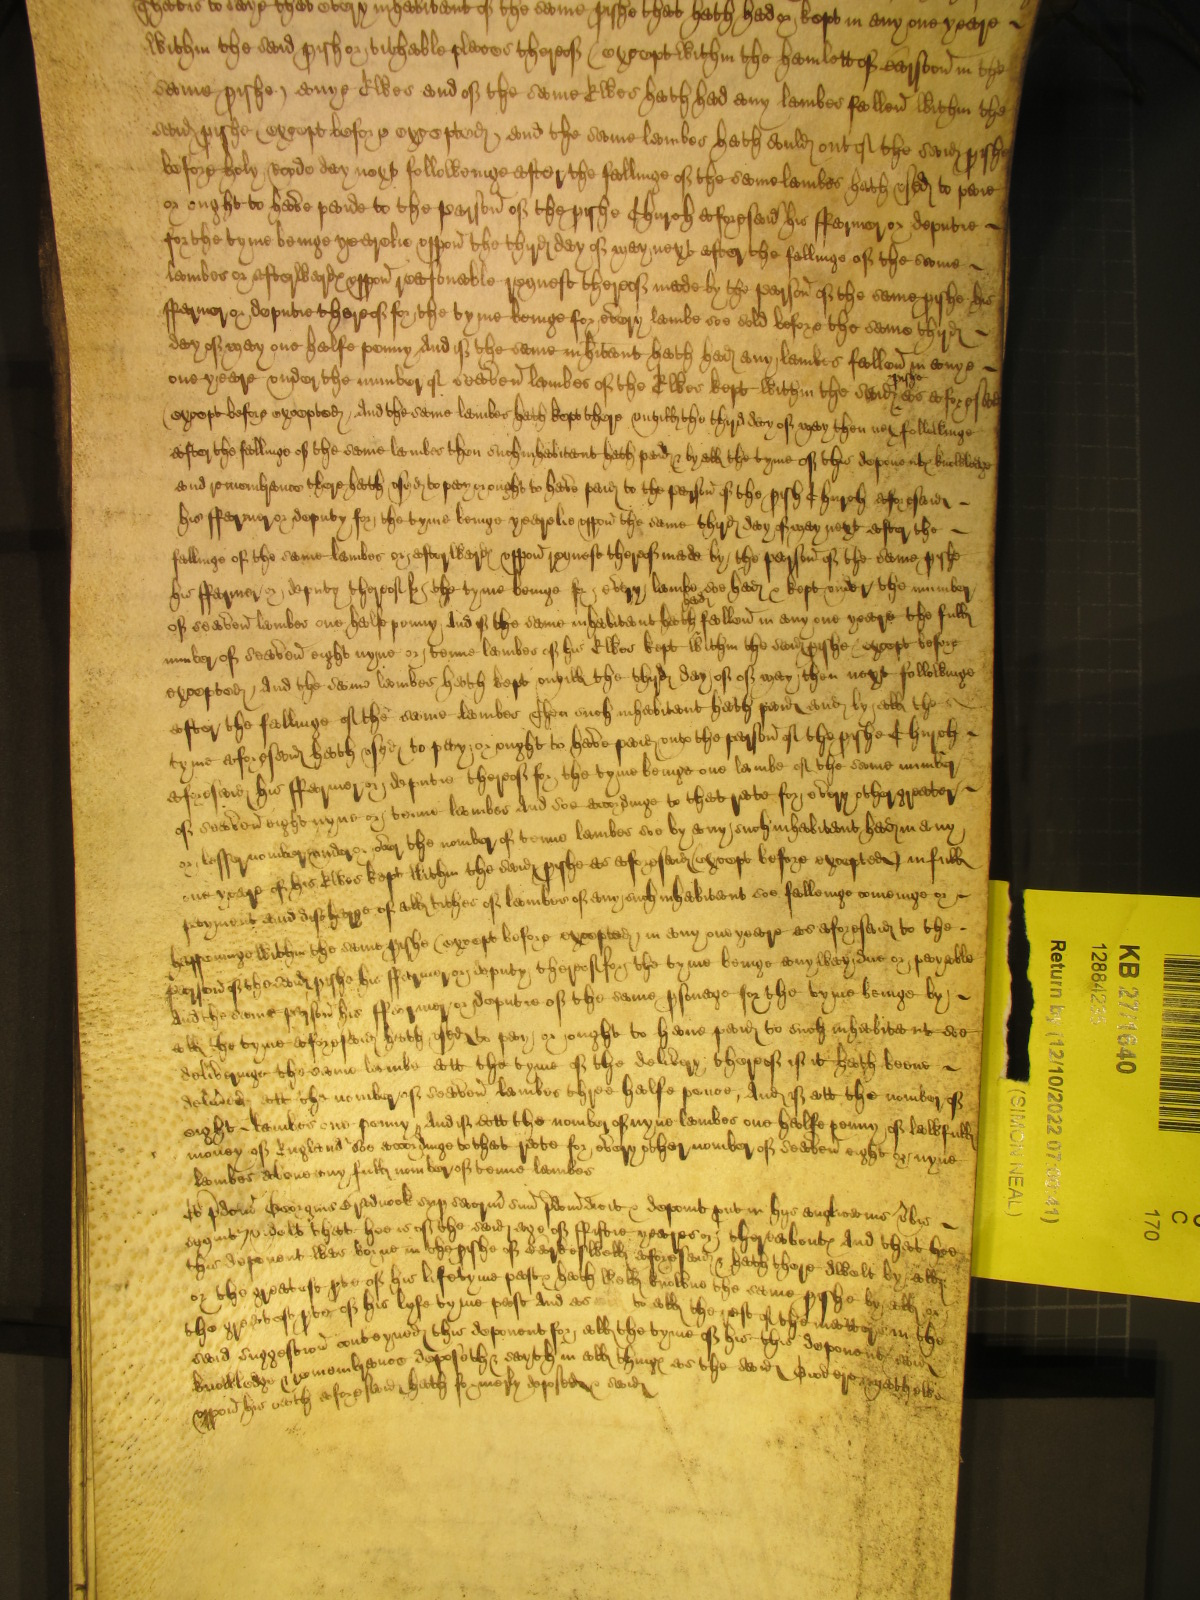 That is to saye that every inhabitant of the same pishe that hath had or kept in any one yeare
within the said pish or tithable places thereof (except within the hamlett of in the
same pishe) anye Ewes and of the same Ewes hath had any lambes fallen within the
said pishe (except before excepted) and the same lambes hath sould out of the said pishe
before holy roode day next followeinge after the fallinge of the same lambes hath used to paie
or ought to have paide to the parson of the pishe Church aforesaid his ffarmer or deputie
for the tyme beinge yearelie uppon the third day of may next after the fallinge of the same
lambes or afterward uppon reasonable request thereof made by the parson of the same pishe his
ffarmer or deputie thereof for the tyme beinge for every lambe soe sold before the same third
day of may one halfe penny And if the same inhitant hath had any lambes fallen in anye
one yeare under the number of seaven lambes of the Ewes kept within the said pishe as aforesaid
(except before excepted) And the same lambes hath kept there untill the third day of may then next followinge
after the fallinge of the same lambes then such inhabitant hath paid & by all the tyme of this deponents knowledge
and remembrance there hath used to pay or ought to have paid to the parson of the pish Church aforesaid
his ffarmer or deputy for the tyme beinge yearelie uppon the same third day of may next after the
fallinge of the same lambes or afterward uppon request thereof made by the parson of the same pishe
his ffarmer or deputy thereof for the tyme beinge for every lambe soe had & kept under the number
of seaven lambes one halfe penny And if the same inhabitant hath had fallen in any one yeare the full
number of seaven eight nyne or tenne lambes of his Ewes kept within the said pishe (except before
excepted) And the same lambes hath kept untill the third day of of may then next followinge
after the fallinge of the same lambes Then such inhabitant hath paid and by all the
tyme aforesaid hath used to pay or ought to have paid unto the parson of the pishe Church
aforesaid his ffarmer or deputie thereof for the tyme beinge one lambe of the same number
of seaven eight nyne or tenne lambes And soe accordinge to that rate for every other greater
or lesser number under or over the number of tenne lambes soe by any such inhabitant had in any
one yeare of his Ewes kept within the said pishe as aforesaid (except before excepted) in full
payment and discharge of all tithes of lambes of any such inhabitant soe fallinge comeinge or
happeninge within the same pishe (except before excepted) in any one yeare as aforesaid to the
parson of the said pishe his ffarmer or deputy thereof for the tyme beinge any way due or payable
And the same parson his ffarmer or deputie of the same psonage for the tyme beinge by
all the tyme aforesaid hath used to pay or ought to have paid to such inhabitant soe
deliveringe the same lambe att the tyme of the delivery thereof if it hath beene
delivered att the number of seaven lambes three halfe pence, And if att the number of
eight lambes one penny And if att the number of nyne lambes one halfe penny of lawfull
money of England soe accordinge to that rate for every other number of seaven eight or nyne
lambes above any full number of tenne lambes
Et pdcus Georgius sup sacrm suu pdcm dicit & deponit put in hijs anglicanis verbis
sequitur vizt That hee is of the age of fiftie yeares or thereabouts And that hee
this deponent was borne in the pishe of aforesaid & hath there dwelt by all
or the greatest pte of his life tyme past & hath well knowne the same pishe by all or
the greatest pte of his lyfe tyme past And as to all the rest of the matters in the
said suggestion conteyned this deponent for all the tyme of his this deponents said
knowledge & remembrance deposeth & sayth in all things as the said
uppon his oath aforesaid hath formerly deposed & said
KB 27/1640
12884226
Return by (12/10/2022 07:00:41)
(SIMON NEAL)
C
170